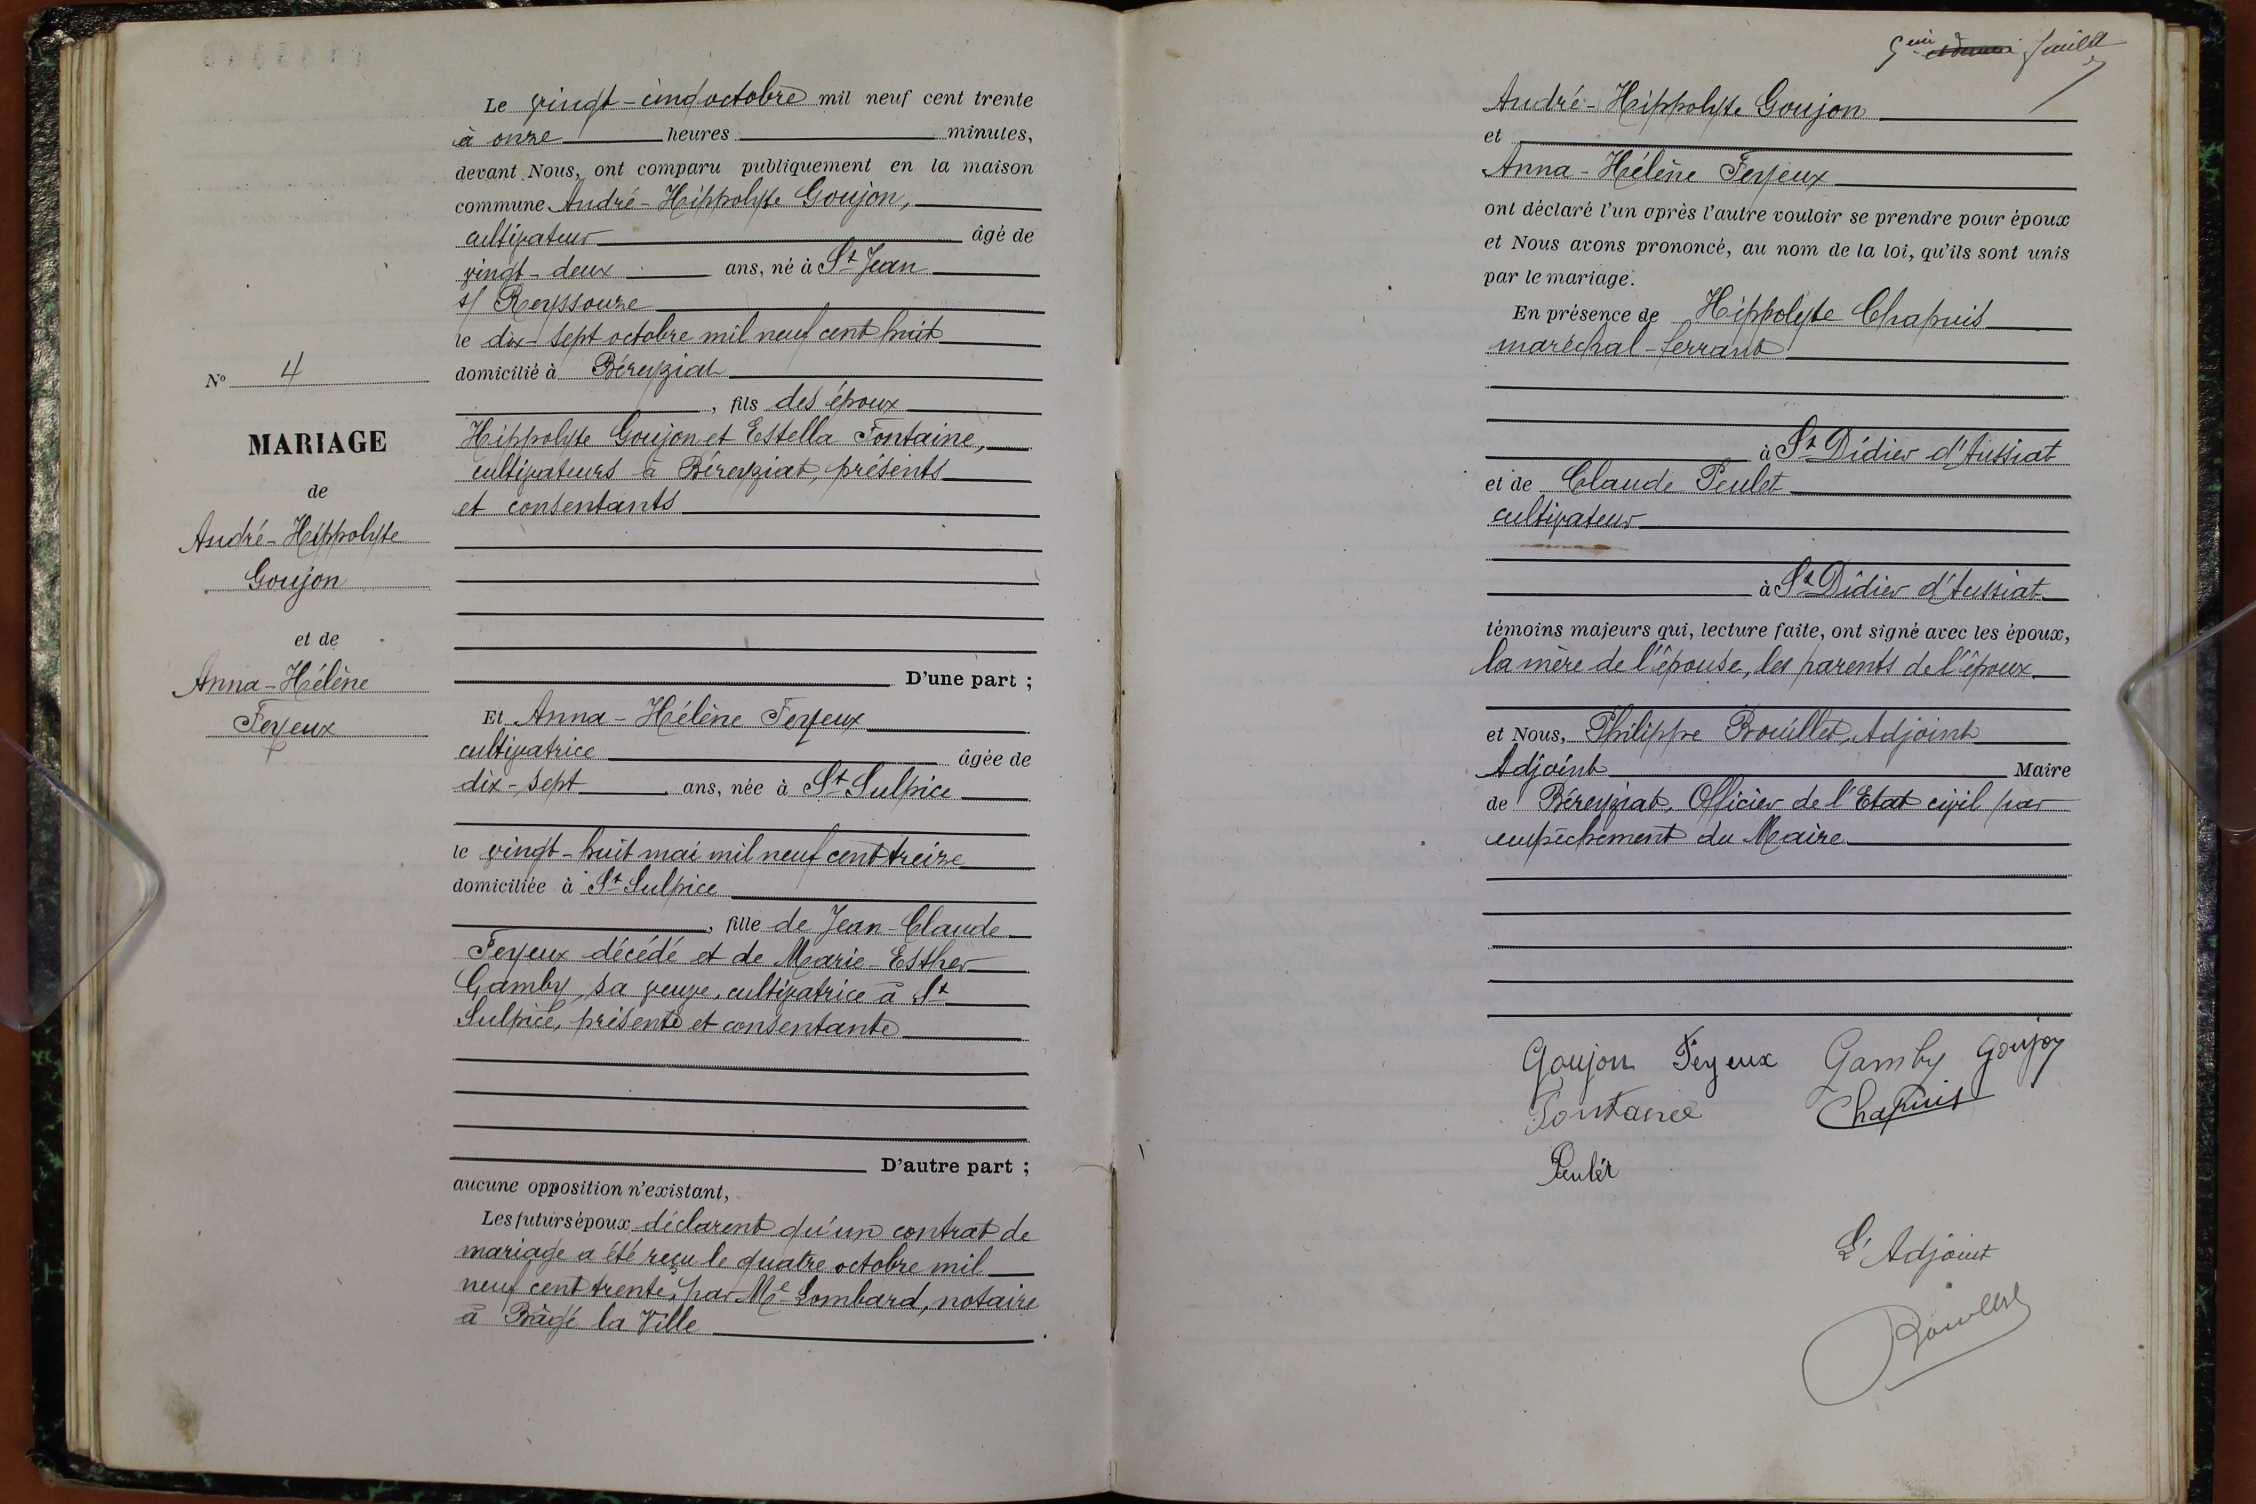 N° 4
MARIAGE
de
André-Hippolyte
Goujon
et de
Anna-Hélène
Feyeux
Le vingt-cinq octobre mil neuf cent trente
à onze heures minutes,
devant Nous, ont comparu publiquement en la maison
commune André-Hippolyte Goujon,
cultivateur âgé de
vingt-deux ans, né à St Jean
s/ Reyssouze
le dix-sept octobre mil neuf cent huit
domicilié à Béreyziat
, fils des époux
Hippolyte Goujon et Estella Fontaine,
cultivateurs à Béreyziat, présents
et consentants
D'une part ;
Et Anna-Hélène Feyeux
cultivatrice âgée de
dix-sept ans, née à St Sulpice
le vingt-huit mai mil neuf cent treize
domiciliée à St Sulpice
, fille de Jean-Claude
Feyeux décédé et de Marie-Esther
Gamby, sa veuve, cultivatrice à St
Sulpice, présente et consentante
D'autre part ;
aucune opposition n'existant,
Les futurs époux déclarent qu'un contrat de
mariage a été reçu le quatre octobre mil
neuf cent trente, par Me Lombard, notaire
à Bâgé la Ville
5eme feuillet
André-Hippolyte Goujon
et
Anna-Hélène Feyeux
ont déclaré l'un après l'autre vouloir se prendre pour époux
et Nous avons prononcé, au nom de la loi, qu'ils sont unis
par le mariage.
En présence de Hippolyte Chapuis
maréchal-ferrant
à St Didier d'Aussiat
et de Claude Peulet
cultivateur
à St Didier d'Aussiat
témoins majeurs qui, lecture faite, ont signé avec les époux,
la mère de l'épouse, les parents de l'époux
et Nous, Philippe Brouillet, Adjoint
Adjoint Maire
de Béreyziat, Officier de l'Etat civil par
empêchement du Maire
Goujon Feyeux Gamby Goujon
Fontaine Chapuis
Peulet
L'Adjoint